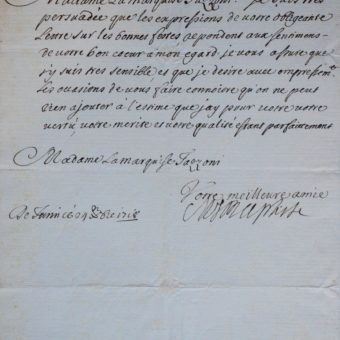 Madame La marquise Fazzoni je suis tres
persuadée que les expressions de votre obligeante
Lettre sur les bonnes fetes repondent aux sentimens
de votre bon coeur a mon egard je vous assure que
j'y suis tres sensible et que je desire avec empressem.
Les ocasions de vous faire connoitre qu'on ne peut
rien ajouter à l'estime que j'ay pour votre votre
vertu, votre merite et votre qualité estant parfaitement
Madame La marquise Fazzoni
Votre meilleure amie
De Turin ce 24